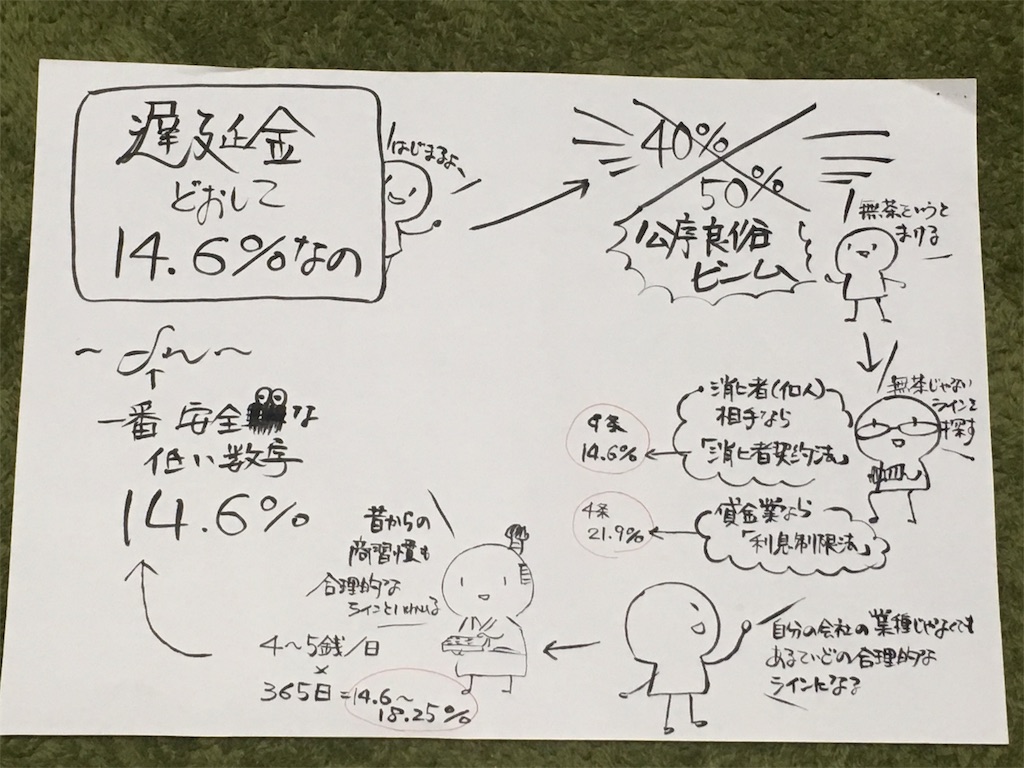 遅延金
どおして
14.6%なの
はじまるよ〜
40%
50%
公序良俗
ビーム
無茶いうと
まける
無茶じゃない
ラインを
探す
消ヒ者(個人)
相手なら
「消ヒ者契約法」
9条
14.6%
貸金業なら
「利息制限法」
4条
21.9%
自分の会社の業種じゃなくても
あるていどの合理的な
ラインになる
昔からの
商習慣も
合理的な
ラインといわれる
4〜5銭/日
×
365日=14.6〜
18.25%
一番安全な
低い数字
14.6%